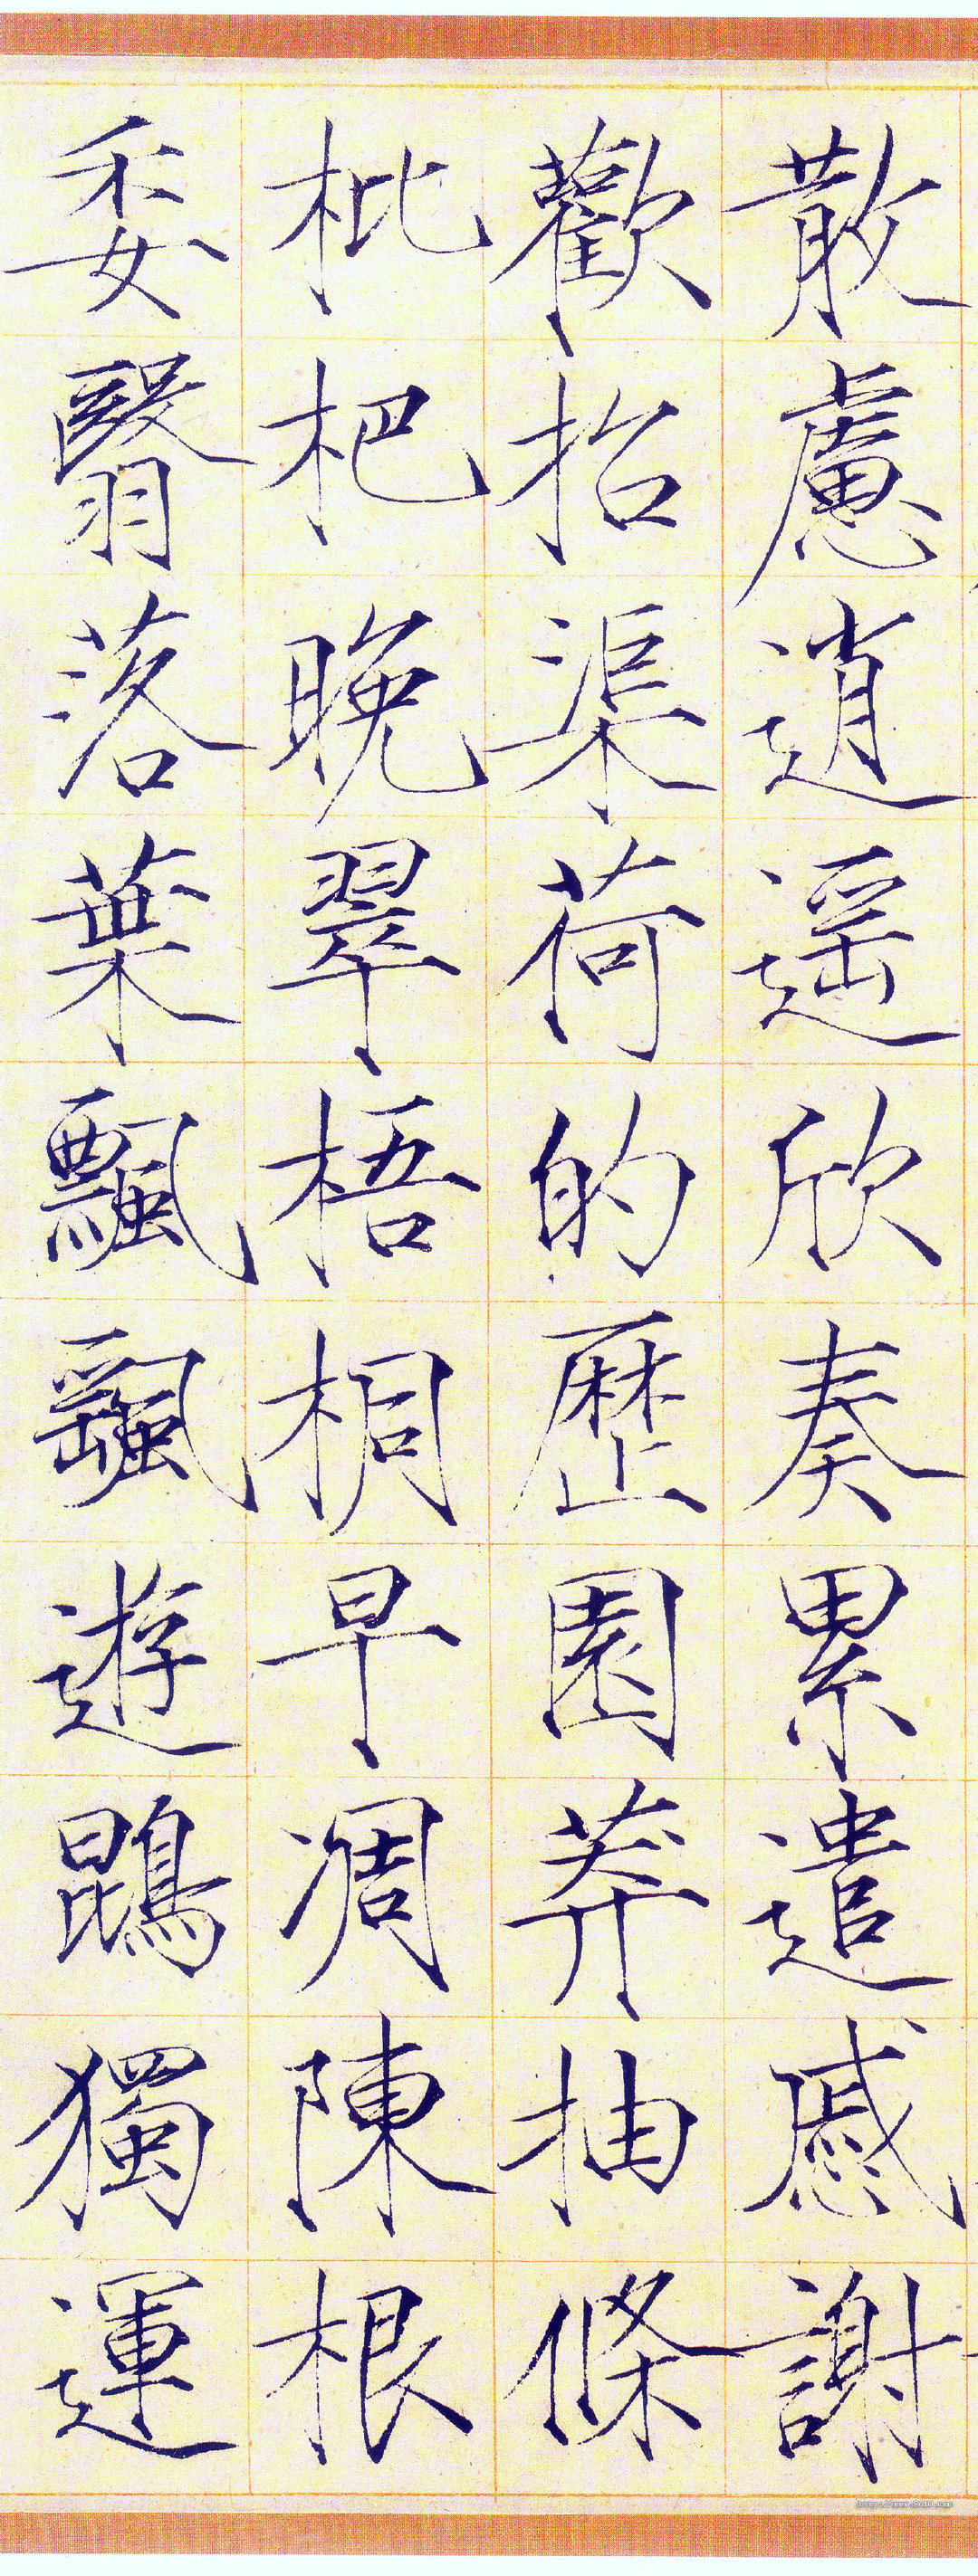 散慮逍遥欣奏累遣慼謝
歡招渠荷的歴園莽抽條
枇杷晚翠梧桐早凋陳根
委翳落葉飄颻遊鵾獨運